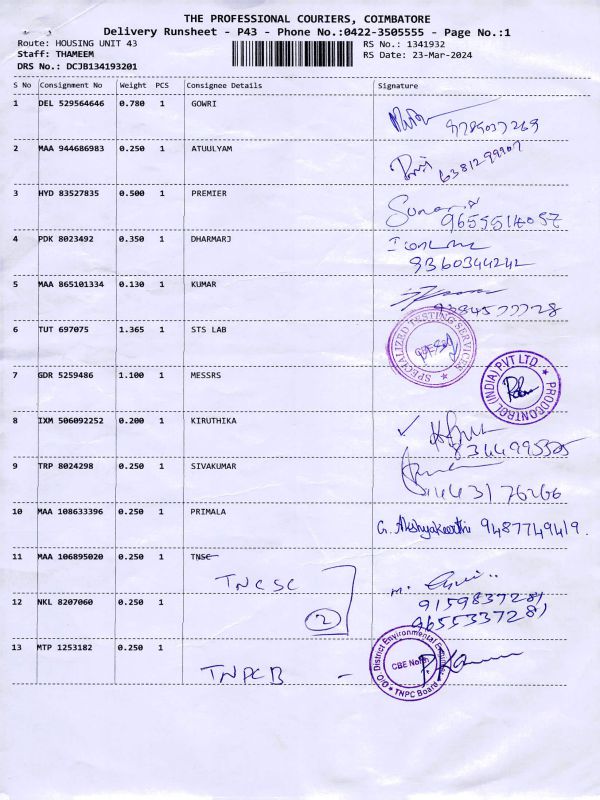 THE PROFESSIONAL COURIERS, COIMBATORE
Delivery Runsheet - P43 - Phone No.:0422-3505555 - Page No.:1
Route: HOUSING UNIT 43 RS No.: 1341932
Staff: THAMEEM RS Date: 23-Mar-2024
DRS No.: DCJB134193201
S No Consignment No Weight PCS Consignee Details Signature
1 DEL 529564646 0.780 1 GOWRI
9789037269
2 MAA 944686983 0.250 1 ATUULYAM
6381299907
3 HYD 83527835 0.500 1 PREMIER
4 PDK 8023492 0.350 1 DHARMARJ
9360344242
5 MAA 865101334 0.130 1 KUMAR
6 TUT 697075 1.365 1 STS LAB
SPECIALIZED TESTING SERVICES
7 GDR 5259486 1.100 1 MESSRS
PRODCONTROL (INDIA) PVT LTD
8 IXM 506092252 0.200 1 KIRUTHIKA
9 TRP 8024298 0.250 1 SIVAKUMAR
10 MAA 108633396 0.250 1 PRIMALA
G. Akshyakeerthi 9487749419.
11 MAA 106895020 0.250 1 TNSC
TNCSC
2
9159837281
9655337281
12 NKL 8207060 0.250 1
13 MTP 1253182 0.250 1
TNPCB -
O/O District Environmental Engineer
CBE North
TNPC Board